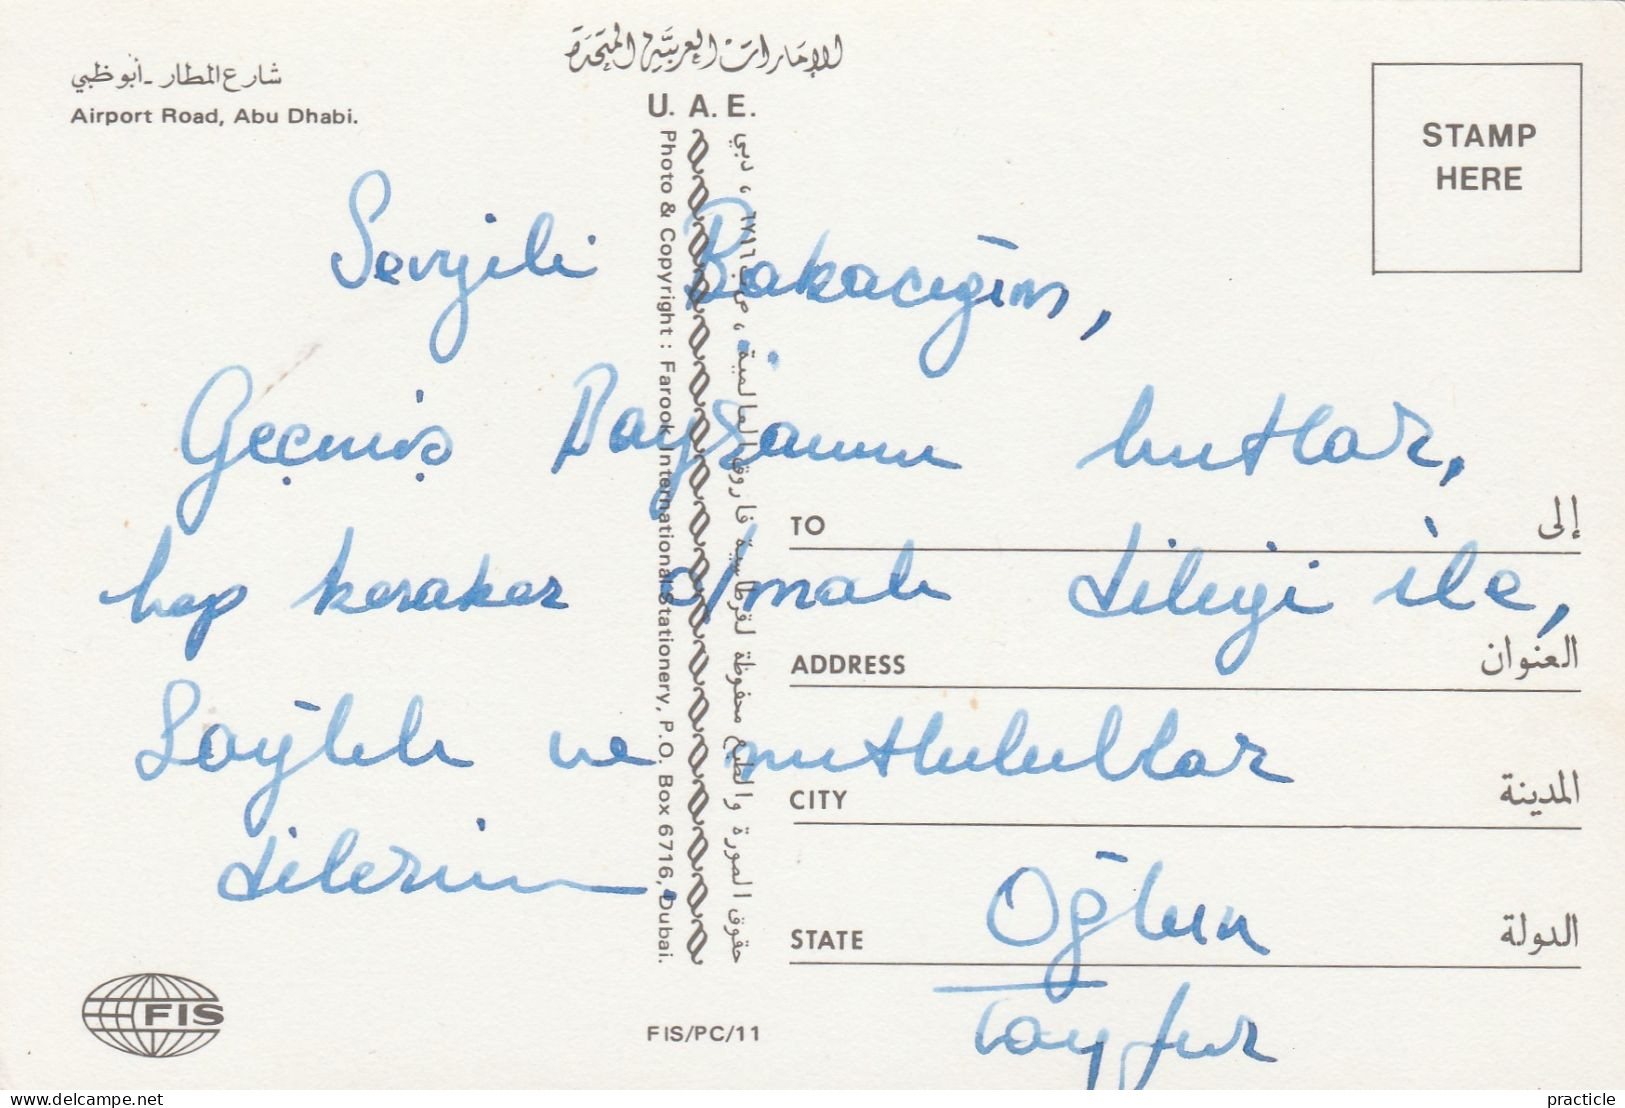 الإمارات العربية المتحدة
شارع المطار ـ أبو ظبي
Airport Road, Abu Dhabi.
U. A. E.
STAMP
HERE
Sevgili Babacığım,
Geçmiş Bayramını kutlar,
hep beraber olmak dileği ile,
Sağlık ve mutluluklar
dilerim.
Oğlun
Tayfur
Photo & Copyright : Farook International Stationery, P.O. Box 6716, Dubai.
حقوق الصورة والطبع محفوظة لقرطاسية فاروق العالمية ، ص.ب ٦٧١٦ ، دبي
TO إلى
ADDRESS العنوان
CITY المدينة
STATE الدولة
FIS
FIS/PC/11
practicle